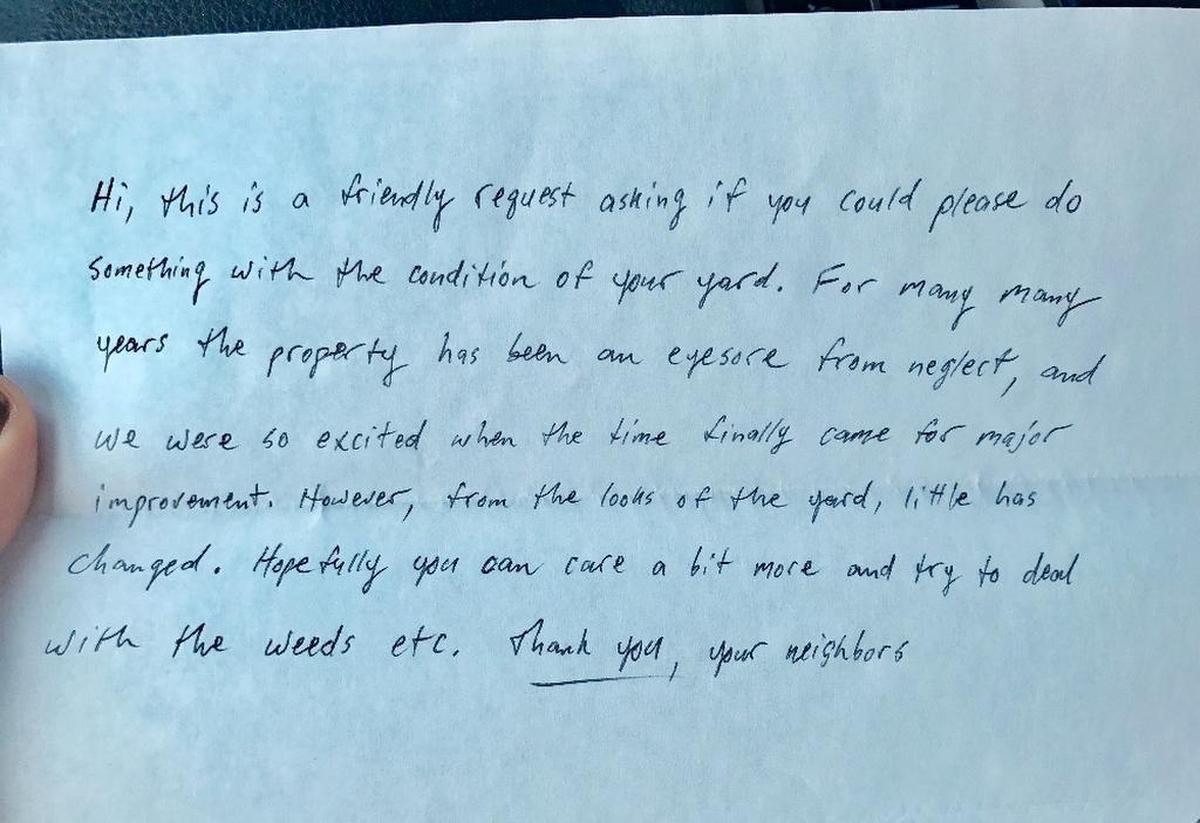 Hi, this is a friendly request asking if you could please do
something with the condition of your yard. For many many
years the property has been an eyesore from neglect, and
we were so excited when the time finally came for major
improvement. However, from the looks of the yard, little has
changed. Hopefully you can care a bit more and try to deal
with the weeds etc. Thank you, your neighbors